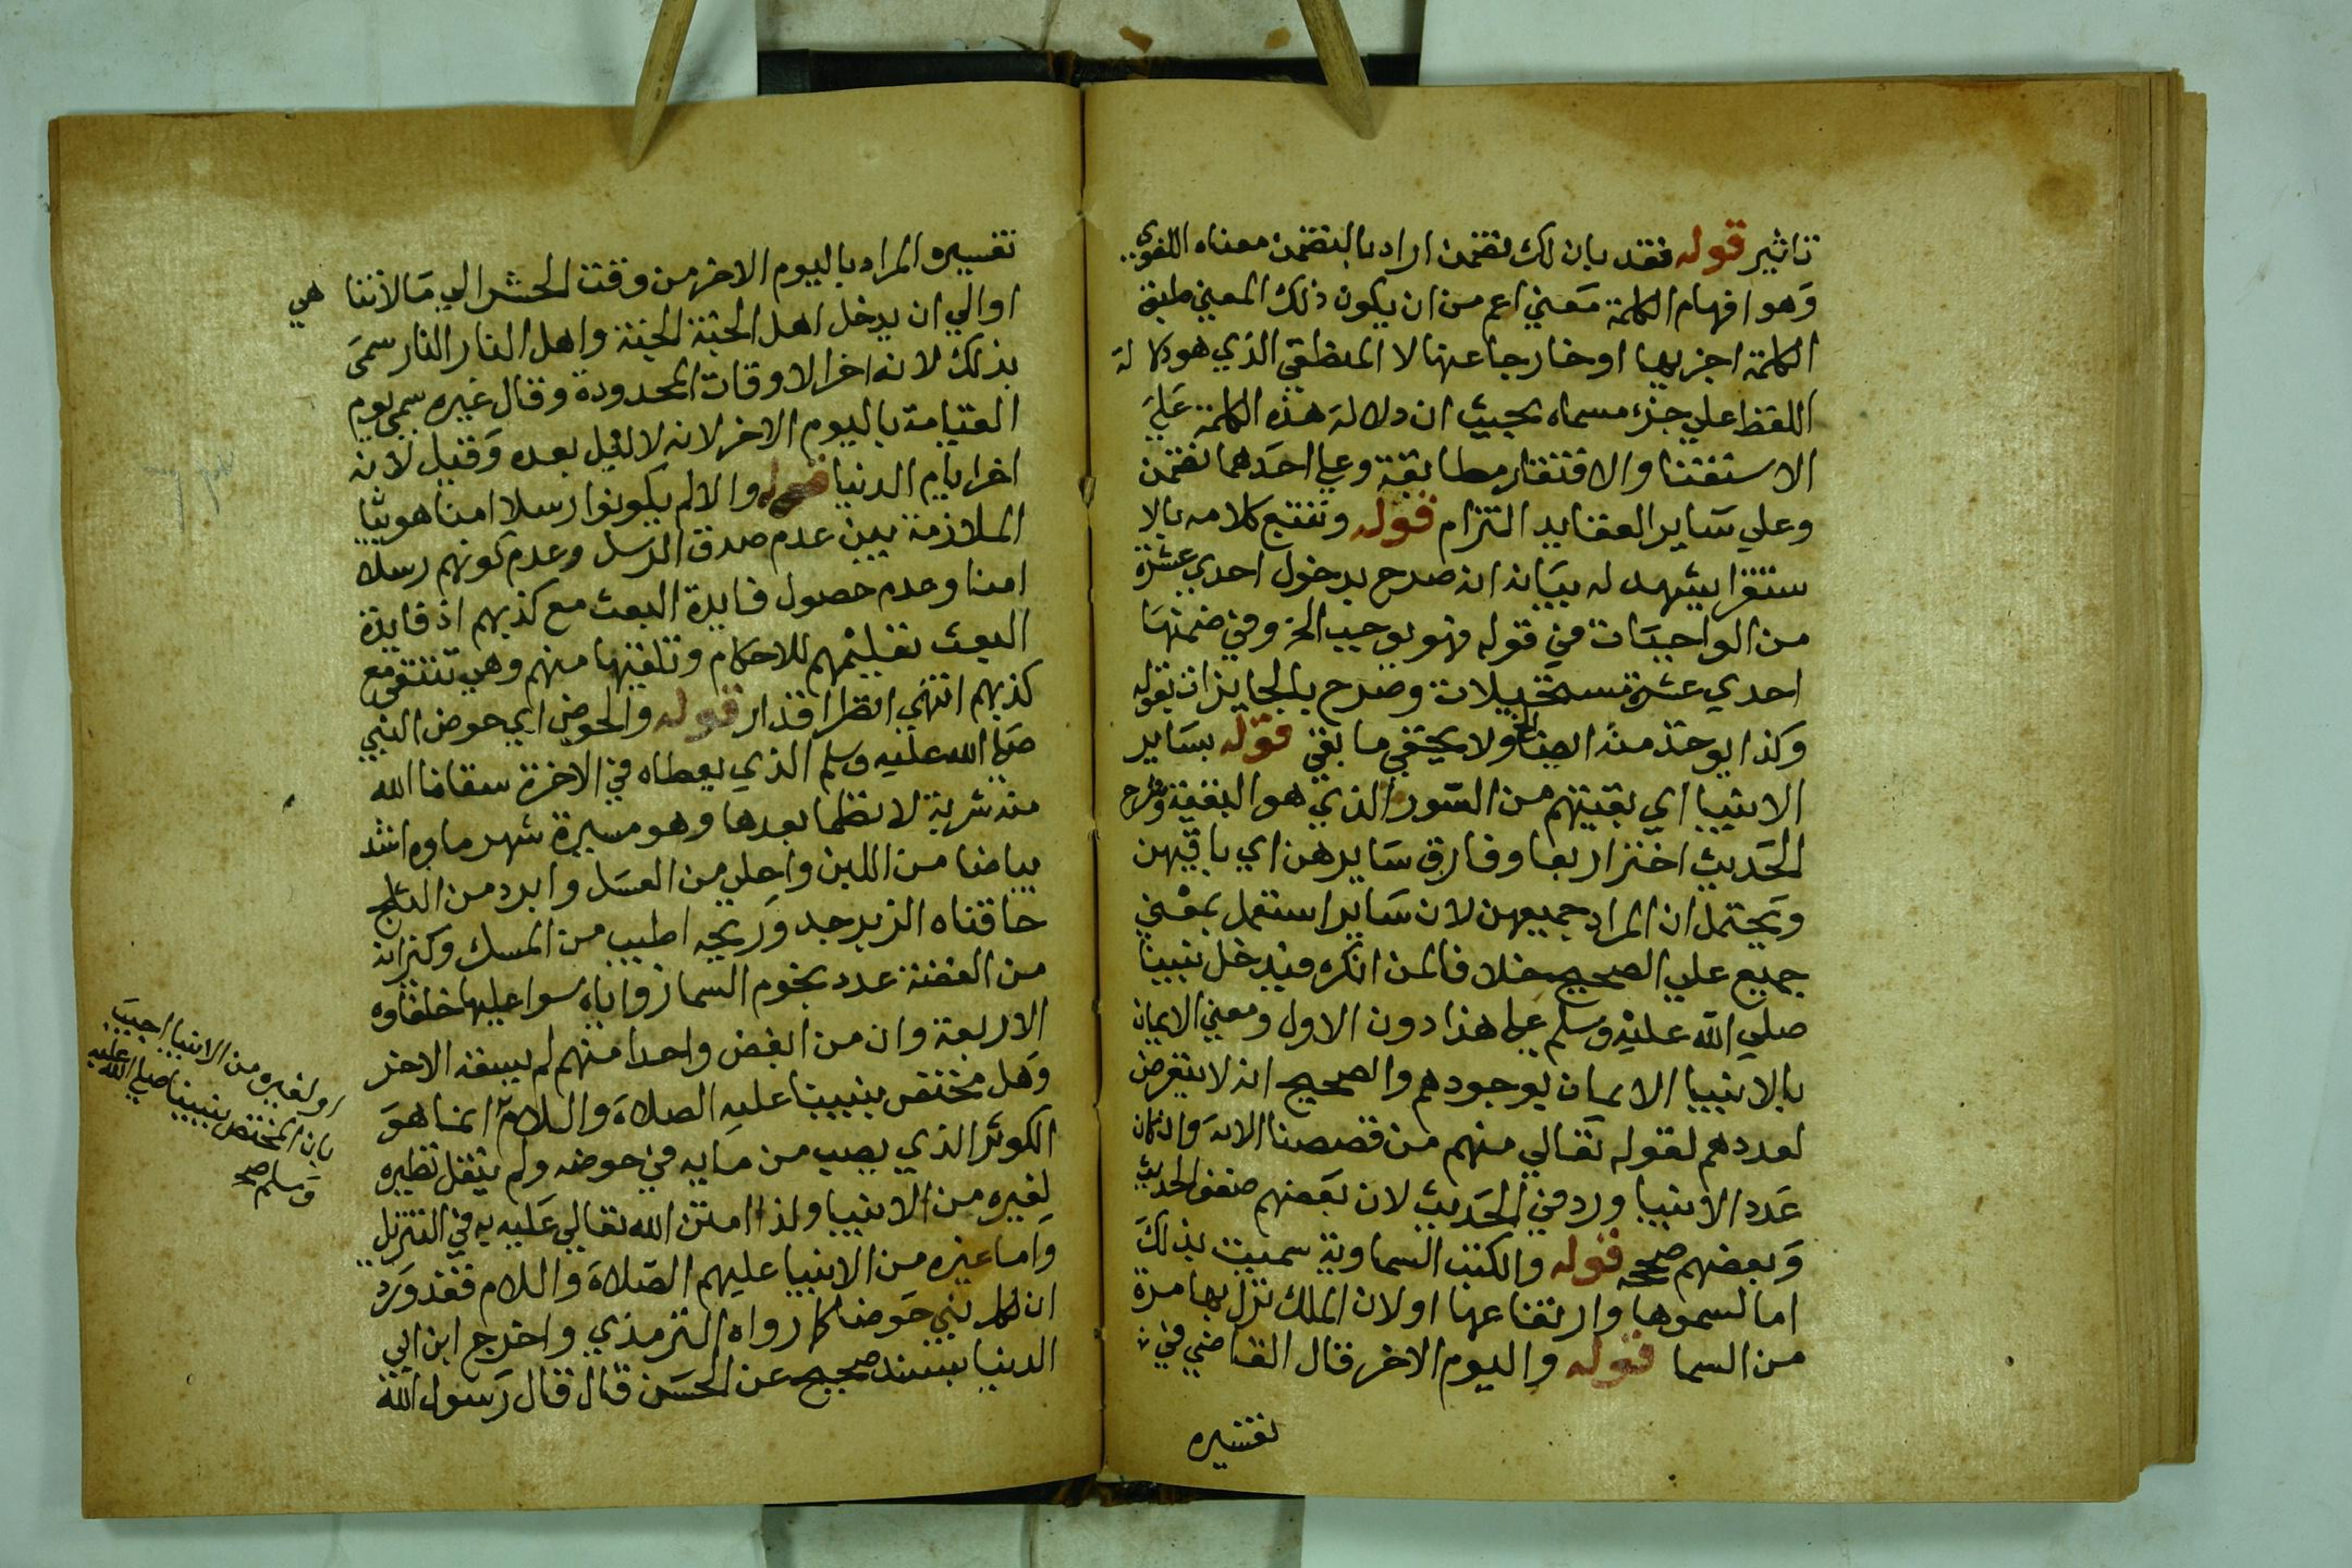 تاثير قوله فقد بان لك تضمن اراد بالتضمن معناه اللغوي
وهو افهام الكلمة معني اعم من ان يكون ذلك المعني طبق
الكلمة اجزيها او خارجا عنها لا المنطقي الذي هو دلالة
اللفظ علي جزء مسماه بحيث ان دلالة هذه الكلمة علي
الاستغنا والافتقار مطابقة وعلي احدهما تضمن
وعلي ساير العقايد التزام قوله وتتبع كلامه بالا
ستقرا يشهد له بيانه انه صرح بدخول احدي عشرة
من الواجبات في قوله فهو يوجب الخ وفي ضمنها
احدي عشرة مستحيلات وصرح بالجايزات بقوله
وكذا يوخذ منه ايضا الخ ولا يخفي ما بقي قوله بساير
الانبيا اي بقيتهم من السور الذي هو البقية وشرح
الحديث اختر اربعا وفارق سايرهن اي باقيهن
ويحتمل ان المراد جميعهن لان ساير استعمل بمعني
جميع علي الصحيح خلافا لمن انكره فيدخل نبينا
صلي الله عليه وسلم علي هذا دون الاول ومعني الايمان
بالانبيا الايمان بوجودهم والصحيح انه لا يتعرض
لعددهم لقوله تعالي منهم من قصصنا الاية وان كان
عدد الانبيا ورد في الحديث لان بعضهم ضعف الحديث
وبعضهم صححه قوله والكتب السماوية سميت بذلك
اما لسموها وارتفاعها او لان الملك نزل بها مرة
من السما قوله واليوم الاخر قال القاضي في
تفسيره
تفسيره المراد باليوم الاخر من وقت الحشر الي مالا تنا هي
اوالي ان يدخل اهل الجنة الجنة واهل النار النار سمي
بذلك لانه اخر الاوقات المحدودة وقال غيره سمي يوم
القيامة باليوم الاخر لانه لا ليل بعده وقيل لانه
اخر ايام الدنيا قوله والا لم يكونوا رسلا امنا هو بيان
الملازمة بين عدم صدق الرسل وعدم كونهم رسلا
امنا وعدم حصول فايدة البعث مع كذبهم اذ فايدة
البعث تعليمهم للاحكام وتلقيها منهم وهي تنتفي مع
كذبهم انتهي انظر اقدار قوله والحوض اي حوض النبي
صلي الله عليه وسلم الذي يعطاه في الاخرة سقانا الله
منه شربة لا نظما بعدها وهو مسيرة شهر ماوه اشد
بياضا من اللبن واحلي من العسل وابرد من الثلج
حافتاه الزبرجد وريحه اطيب من المسك وكيزانه
من الفضة عدد نجوم السما زواياه سوا عليها خلفاوه
الاربعة وان من ابغض واحدا منهم لم يسقه الاخر
وهل مختص بنبينا عليه الصلاة والسلام انما هو
الكوثر الذي يصب من مايه في حوضه ولم ينقل نظيره
لغيره من الانبيا ولذا امتن الله تعالي عليه به في التنزيل
واما غيره من الانبيا عليهم الصلاة والسلام فقد ورد
ان لكل نبي حوضا كما رواه الترمذي واخرج ابن ابي
الدنيا بسند صحيح عن الحسن قال قال رسول الله
او لغيره من الانبيا اجيب
بان المختص بنبينا صلي الله عليه
وسلم صح